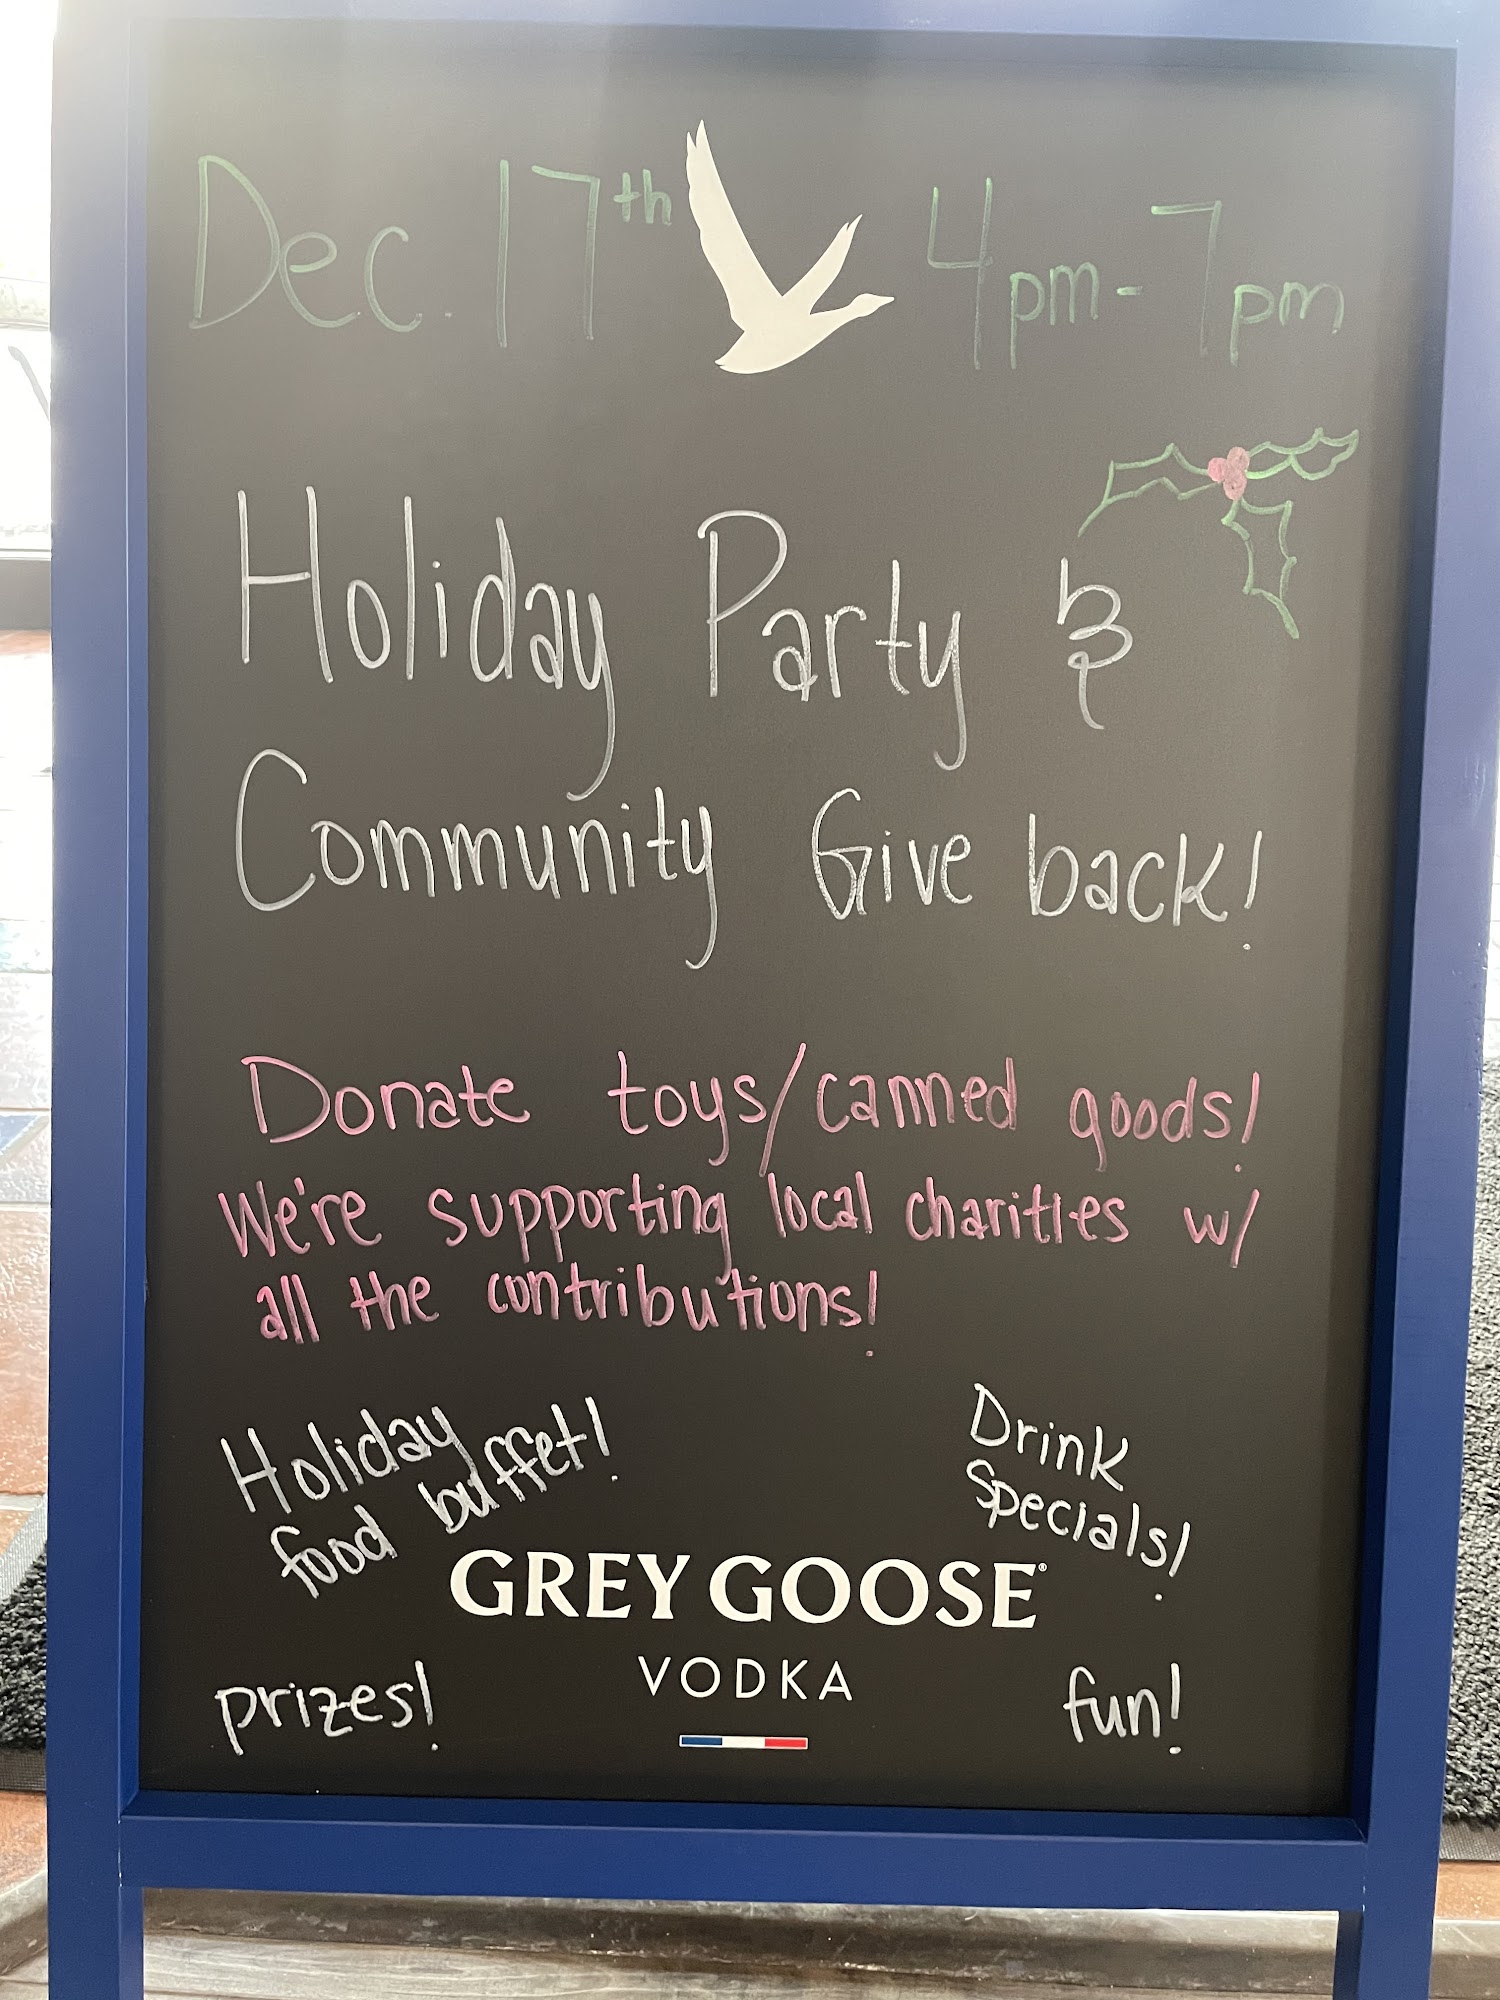 Dec. 17th 4pm-7pm
Holiday Party &
Community Give back!
Donate toys/canned goods!
We're supporting local charities w/
all the contributions!
Holiday
food buffet!
Drink
Specials!
GREY GOOSE®
VODKA
prizes!
fun!